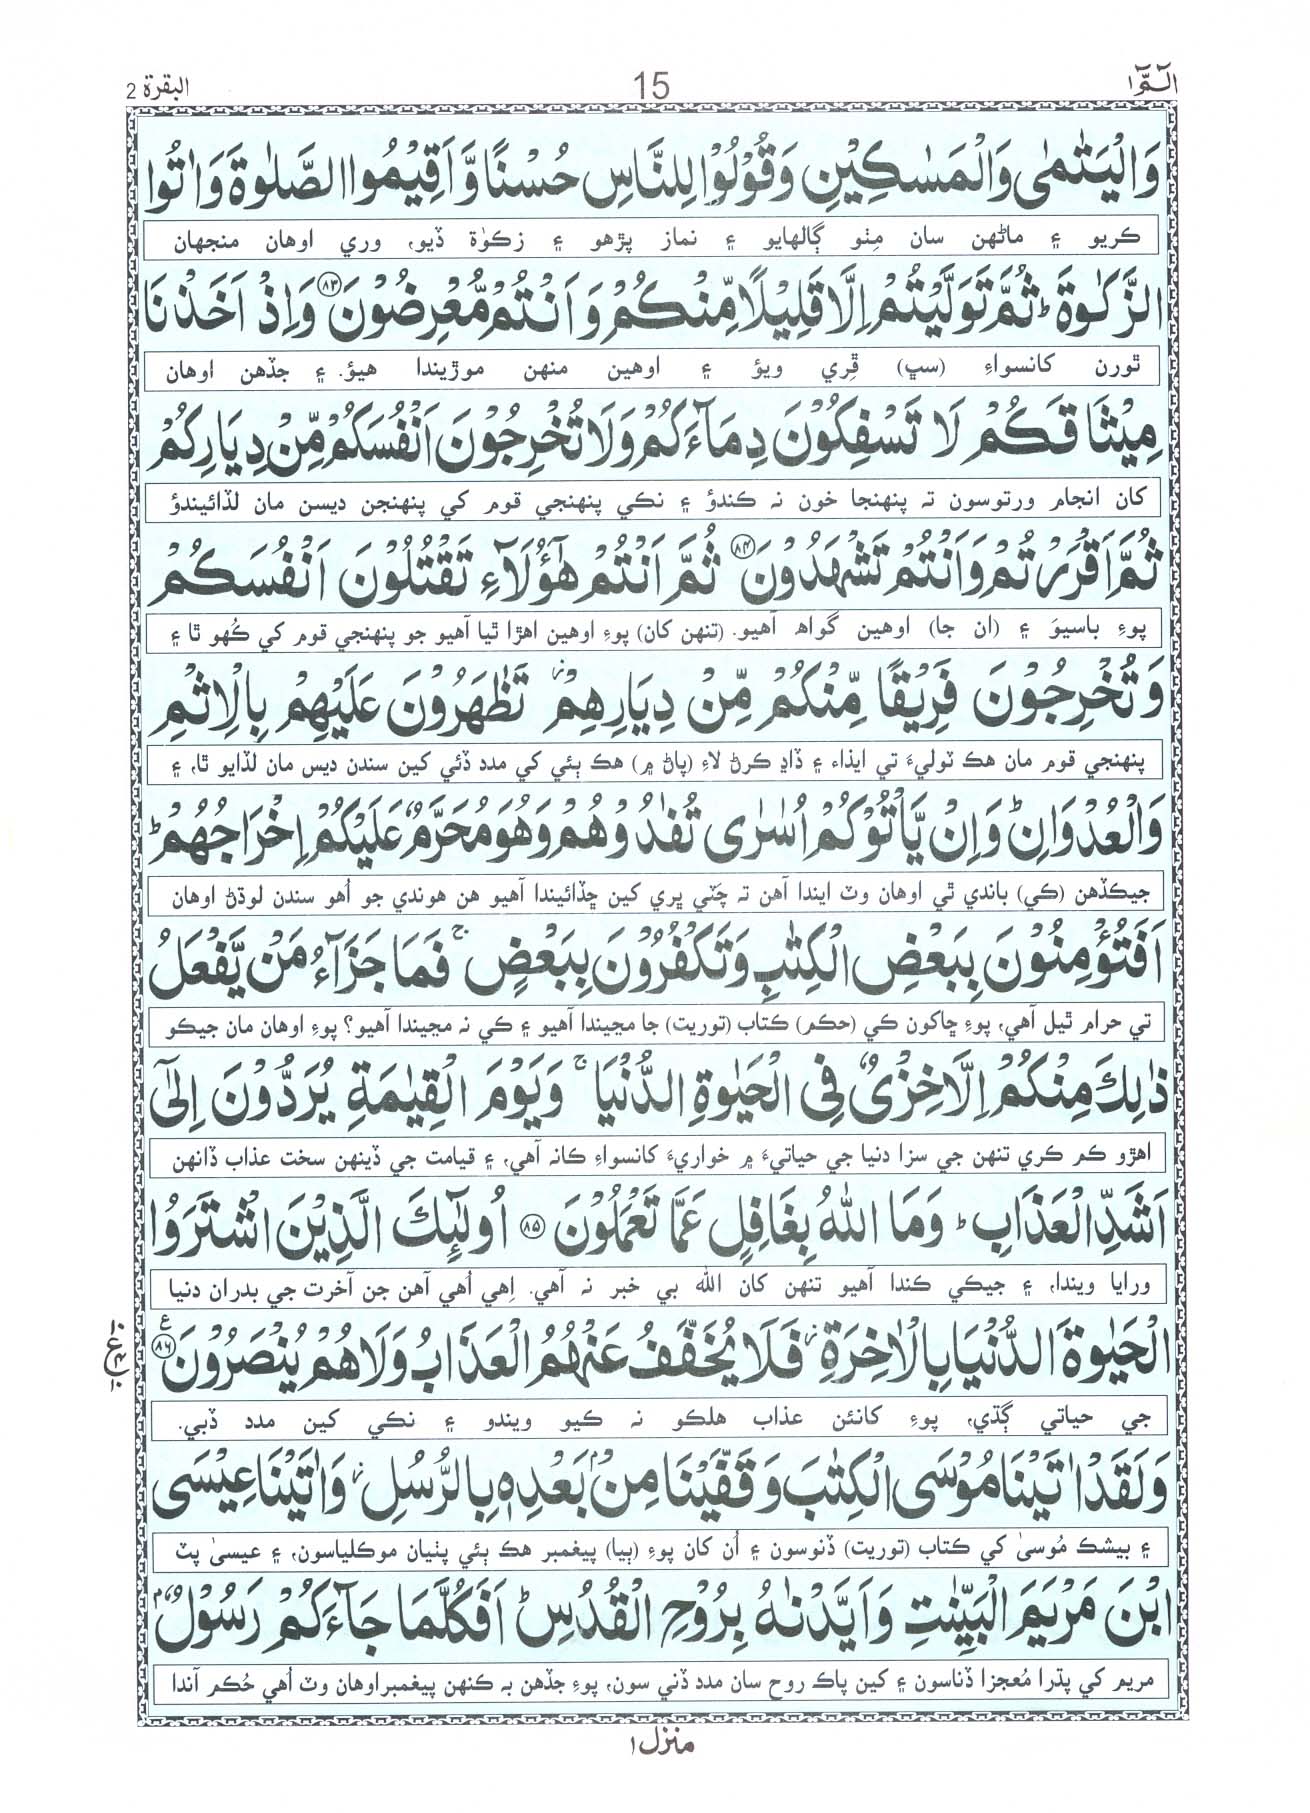 الٓمّٓ ۱
15
البقرة 2
وَالْيَتٰمٰى وَالْمَسٰكِيْنِ وَقُوْلُوْا لِلنَّاسِ حُسْنًا وَّاَقِيْمُوا الصَّلٰوةَ وَاٰتُوا
ڪريو ۽ ماڻهن سان مِٺو ڳالهايو ۽ نماز پڙهو ۽ زڪوٰة ڏيو، وري اوهان منجهان
الزَّكٰوةَ ؕ ثُمَّ تَوَلَّيْتُمْ اِلَّا قَلِيْلًا مِّنْكُمْ وَاَنْتُمْ مُّعْرِضُوْنَ ﴿۸۳﴾ وَاِذْ اَخَذْنَا
ٿورن کانسواءِ (سڀ) ڦِري ويؤ ۽ اوهين منهن موڙيندا هيؤ. ۽ جڏهن اوهان
مِيْثَاقَكُمْ لَا تَسْفِكُوْنَ دِمَآءَكُمْ وَلَا تُخْرِجُوْنَ اَنْفُسَكُمْ مِّنْ دِيَارِكُمْ
کان انجام ورتوسون تہ پنهنجا خون نہ ڪندؤ ۽ نڪي پنهنجي قوم کي پنهنجن ديسن مان لڏائيندؤ
ثُمَّ اَقْرَرْتُمْ وَاَنْتُمْ تَشْهَدُوْنَ ﴿۸۴﴾ ثُمَّ اَنْتُمْ هٰٓؤُلَآءِ تَقْتُلُوْنَ اَنْفُسَكُمْ
پوءِ باسيوَ ۽ (ان جا) اوهين گواهہ آهيو. (تنهن کان) پوءِ اوهين اهڙا ٿيا آهيو جو پنهنجي قوم کي ڪُهو ٿا ۽
وَتُخْرِجُوْنَ فَرِيْقًا مِّنْكُمْ مِّنْ دِيَارِهِمْ ؗ تَظٰهَرُوْنَ عَلَيْهِمْ بِالْاِثْمِ
پنهنجي قوم مان هڪ ٽوليءَ تي ايذاء ۽ ڏاڍ ڪرڻ لاءِ (پاڻ ۾) هڪ ٻئي کي مدد ڏئي کين سندن ديس مان لڏايو ٿا، ۽
وَالْعُدْوَانِ ؕ وَاِنْ يَّاْتُوْكُمْ اُسٰرٰى تُفٰدُوْهُمْ وَهُوَ مُحَرَّمٌ عَلَيْكُمْ اِخْرَاجُهُمْ ؕ
جيڪڏهن (ڪي) باندي ٿي اوهان وٽ ايندا آهن تہ چَٽي ڀري کين ڇڏائيندا آهيو هن هوندي جو اُهو سندن لوڌڻ اوهان
اَفَتُؤْمِنُوْنَ بِبَعْضِ الْكِتٰبِ وَتَكْفُرُوْنَ بِبَعْضٍ ۚ فَمَا جَزَآءُ مَنْ يَّفْعَلُ
تي حرام ٿيل آهي، پوءِ ڇاڪون ڪي (حڪم) ڪتاب (توريت) جا مڃيندا آهيو ۽ ڪي نہ مڃيندا آهيو؟ پوءِ اوهان مان جيڪو
ذٰلِكَ مِنْكُمْ اِلَّا خِزْىٌ فِى الْحَيٰوةِ الدُّنْيَا ۚ وَيَوْمَ الْقِيٰمَةِ يُرَدُّوْنَ اِلٰٓى
اهڙو ڪم ڪري تنهن جي سزا دنيا جي حياتيءَ ۾ خواريءَ کانسواءِ ڪانہ آهي، ۽ قيامت جي ڏينهن سخت عذاب ڏانهن
اَشَدِّ الْعَذَابِ ؕ وَمَا اللّٰهُ بِغَافِلٍ عَمَّا تَعْمَلُوْنَ ﴿۸۵﴾ اُولٰٓئِكَ الَّذِيْنَ اشْتَرَوُا
ورايا ويندا، ۽ جيڪي ڪندا آهيو تنهن کان الله بي خبر نہ آهي. اِهي اُهي آهن جن آخرت جي بدران دنيا
الْحَيٰوةَ الدُّنْيَا بِالْاٰخِرَةِ ؗ فَلَا يُخَفَّفُ عَنْهُمُ الْعَذَابُ وَلَا هُمْ يُنْصَرُوْنَ ﴿۸۶﴾ ع
۱۰ ع ۴ ۱۰
جي حياتي ڳڌي، پوءِ کانئن عذاب هلڪو نہ ڪيو ويندو ۽ نڪي کين مدد ڏبي.
وَلَقَدْ اٰتَيْنَا مُوْسَى الْكِتٰبَ وَقَفَّيْنَا مِنْۢ بَعْدِهٖ بِالرُّسُلِ ؗ وَاٰتَيْنَا عِيْسَى
۽ بيشڪ مُوسىٰ کي ڪتاب (توريت) ڏنوسون ۽ اُن کان پوءِ (ٻيا) پيغمبر هڪ ٻئي پٺيان موڪلياسون، ۽ عيسىٰ پٽ
ابْنَ مَرْيَمَ الْبَيِّنٰتِ وَاَيَّدْنٰهُ بِرُوْحِ الْقُدُسِ ؕ اَفَكُلَّمَا جَآءَكُمْ رَسُوْلٌۢ
مريم کي پڌرا مُعجزا ڏناسون ۽ کين پاڪ روح سان مدد ڏني سون، پوءِ جڏهن بہ ڪنهن پيغمبر اوهان وٽ اُهي حُڪم آندا
منزل ۱